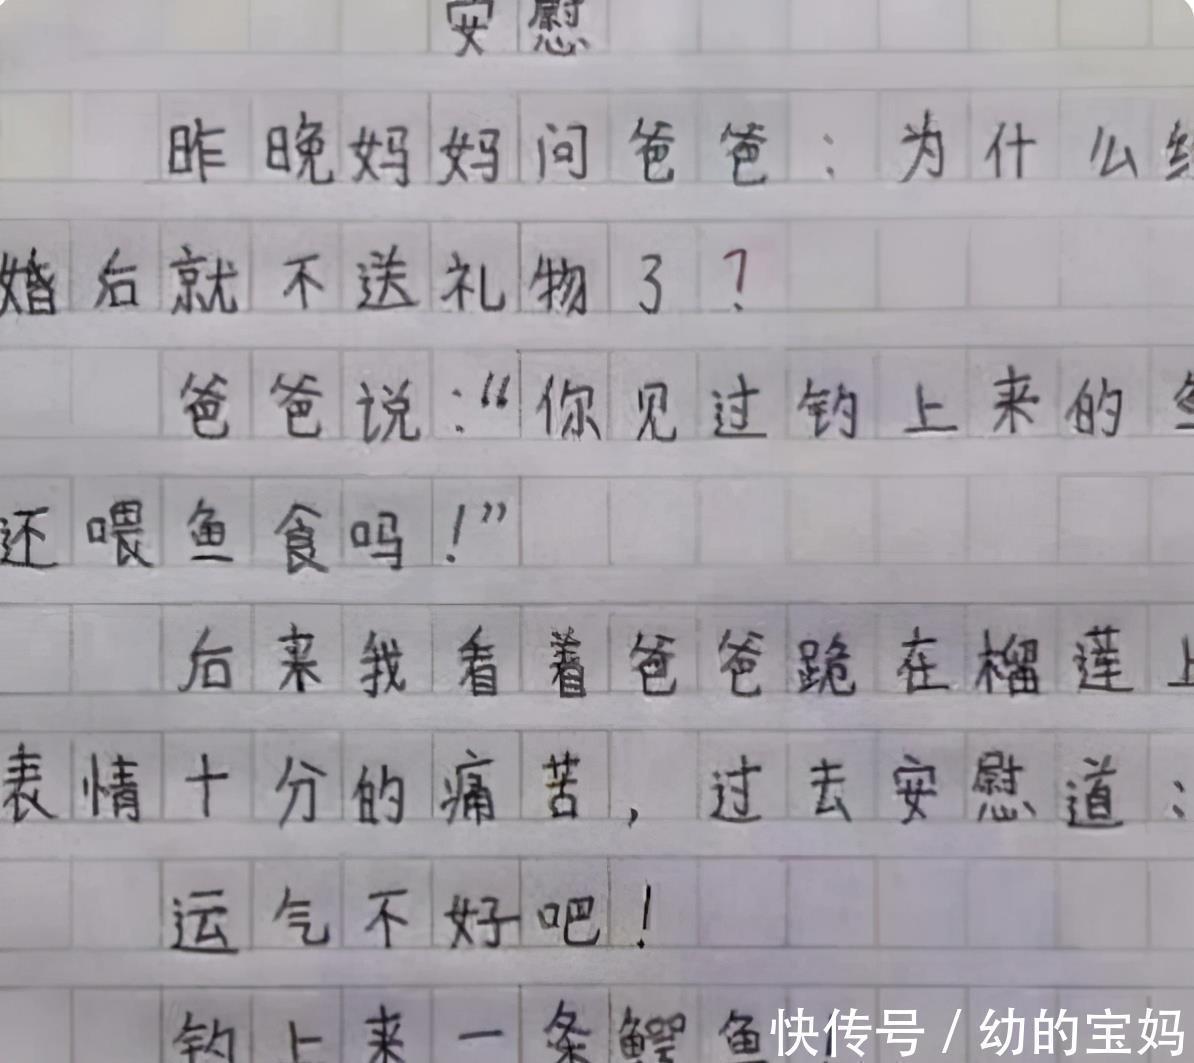 安慰
昨晚妈妈问爸爸：为什么结
婚后就不送礼物了？
爸爸说：“你见过钓上来的鱼
还喂鱼食吗！”
后来我看着爸爸跪在榴莲上
表情十分的痛苦，过去安慰道：
运气不好吧！
钓上来一条鳄鱼！
快传号 / 幼的宝妈